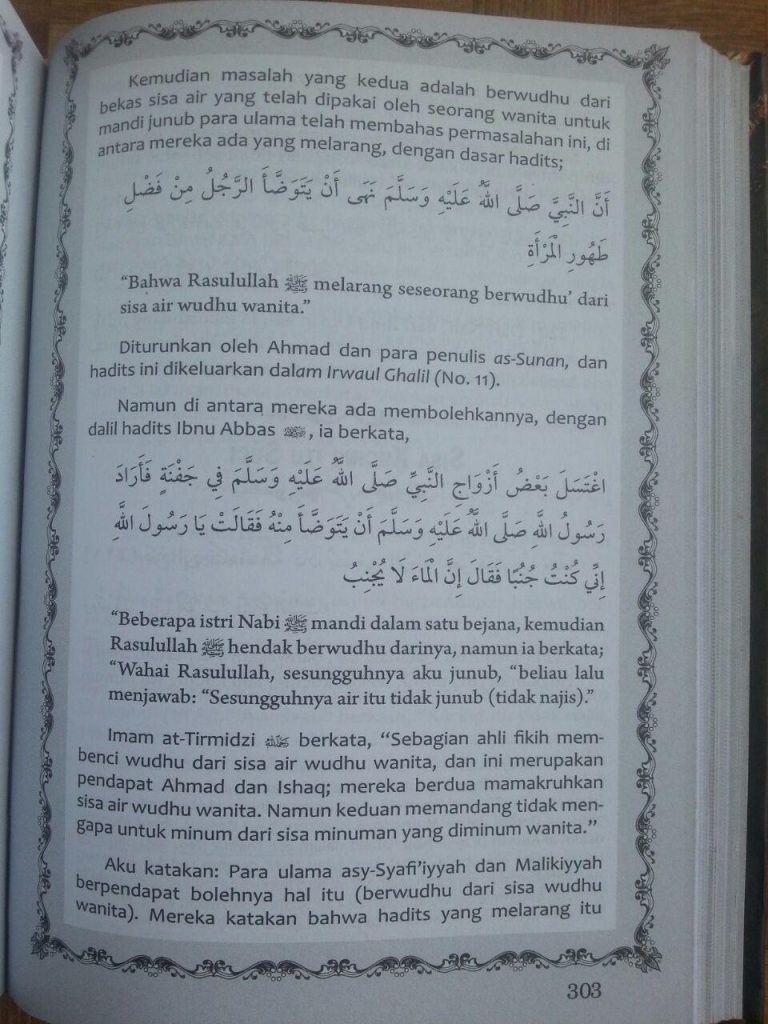 Kemudian masalah yang kedua adalah berwudhu dari
bekas sisa air yang telah dipakai oleh seorang wanita untuk
mandi junub para ulama telah membahas permasalahan ini, di
antara mereka ada yang melarang, dengan dasar hadits;
أَنَّ النَّبِيَّ صَلَّى اللَّهُ عَلَيْهِ وَسَلَّمَ نَهَى أَنْ يَتَوَضَّأَ الرَّجُلُ مِنْ فَضْلِ
طَهُورِ الْمَرْأَةِ
“Bahwa Rasulullah ﷺ melarang seseorang berwudhu’ dari
sisa air wudhu wanita.”
Diturunkan oleh Ahmad dan para penulis as-Sunan, dan
hadits ini dikeluarkan dalam Irwaul Ghalil (No. 11).
Namun di antara mereka ada membolehkannya, dengan
dalil hadits Ibnu Abbas , ia berkata,
اغْتَسَلَ بَعْضُ أَزْوَاجِ النَّبِيِّ صَلَّى اللَّهُ عَلَيْهِ وَسَلَّمَ فِي جَفْنَةٍ فَأَرَادَ
رَسُولُ اللَّهِ صَلَّى اللَّهُ عَلَيْهِ وَسَلَّمَ أَنْ يَتَوَضَّأَ مِنْهُ فَقَالَتْ يَا رَسُولَ اللَّهِ
إِنِّي كُنْتُ جُنُبًا فَقَالَ إِنَّ الْمَاءَ لَا يُجْنِبُ
“Beberapa istri Nabi ﷺ mandi dalam satu bejana, kemudian
Rasulullah ﷺ hendak berwudhu darinya, namun ia berkata;
“Wahai Rasulullah, sesungguhnya aku junub, “beliau lalu
menjawab: “Sesungguhnya air itu tidak junub (tidak najis).”
Imam at-Tirmidzi berkata, “Sebagian ahli fikih mem-
benci wudhu dari sisa air wudhu wanita, dan ini merupakan
pendapat Ahmad dan Ishaq; mereka berdua mamakruhkan
sisa air wudhu wanita. Namun keduan memandang tidak men-
gapa untuk minum dari sisa minuman yang diminum wanita.”
Aku katakan: Para ulama asy-Syafi’iyyah dan Malikiyyah
berpendapat bolehnya hal itu (berwudhu dari sisa wudhu
wanita). Mereka katakan bahwa hadits yang melarang itu
303